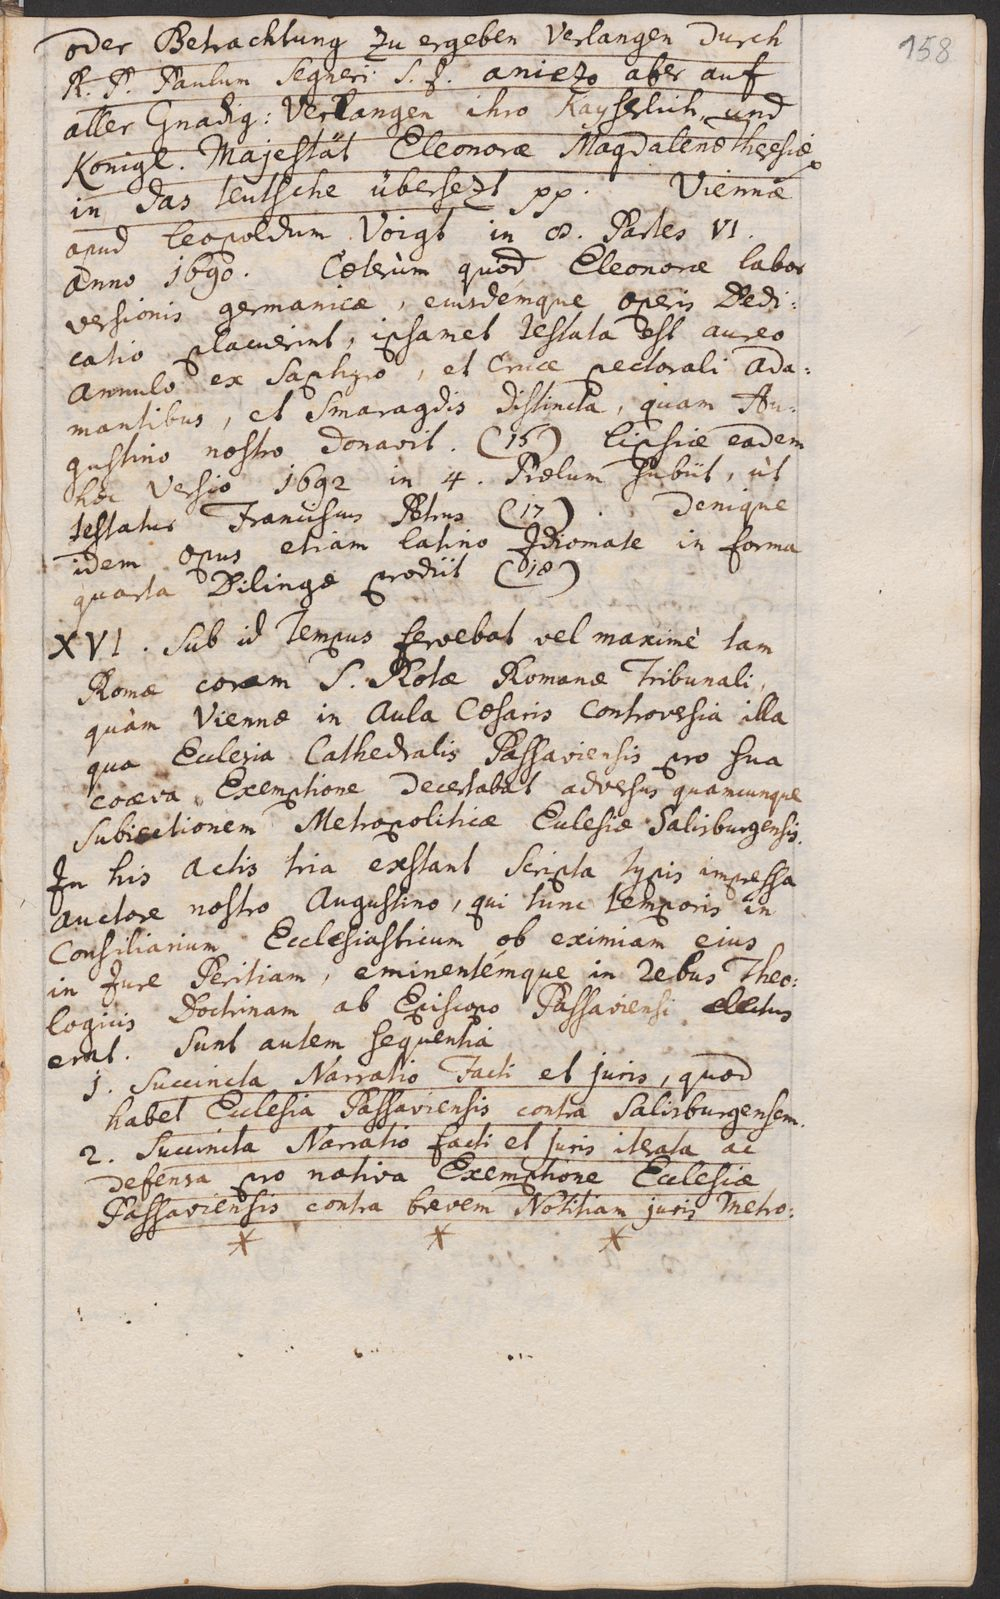 158
oder Betrachtung zu ergeben Verlangen durch
R. P. Paulum Segneri S. J. aniezo aber auf
aller Gnadig: Verlangen ihro Kayserlich. und
Königl. Majestät Eleonoræ Magdalenæ Theresiæ
in das teutsche übersezt pp. Viennæ
apud Leopoldum Voigt in 8. Partes VI.
Anno 1690. Cæterùm quod Eleonoræ labor
versionis germanicæ, eiusdémque operis Dedi:
catio placuerint, ipsamet testata est aureo
Annulo ex Saphyro, et Cruce pectorali Ada:
mantibus, et Smaragdis distincta, quam Au:
gustino nostro donavit. (16) Lipsiæ eadem
hæc Versio 1692 in 4. Prælum subiit, ùt
testatur Franciscus Petrus (17). Denique
idem opus etiam latino Idiomate in forma
quarta Dilingæ prodiit (18)
XVI. Sub id tempus fervebat vel maximè tam
Romæ coram S. Rotæ Romanæ Tribunali,
quàm Viennæ in Aula Cæsaris Controversia illa
qua Ecclesia Cathedralis Passaviensis pro sua
coæva Exemptione decertabat adversus quamcunque
Subiectionem Metropoliticæ Eclesiæ Salisburgensis.
In his Actis tria exstant Scripta typis impressa
Auctore nostro Augustino, qui tunc temporis in
Consiliarium Ecclesiasticum ob eximiam eius
in Jure Peritiam, eminentémque in rebus Theo:
logicis Doctrinam ab Episcopo Passaviensi electus
erat. Sunt autem sequentia
1. Succincta Narratio Facti et juris, quod
habet Ecclesia Passaviensis contra Salisburgensem.
2. Succincta Narratio facti et Juris iterata ac
defensa pro nativa Exemptione Ecclesiæ
Passaviensis contra brevem Notitiam juris Metro:
* * *